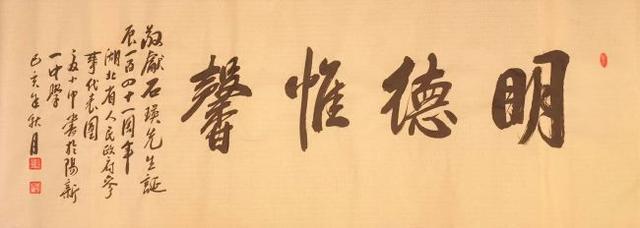 明德惟馨
敬獻石瑛先生誕
辰一百四十一周年
湖北省人民政府參
事代表團
書於陽新
一中學
己亥年秋月